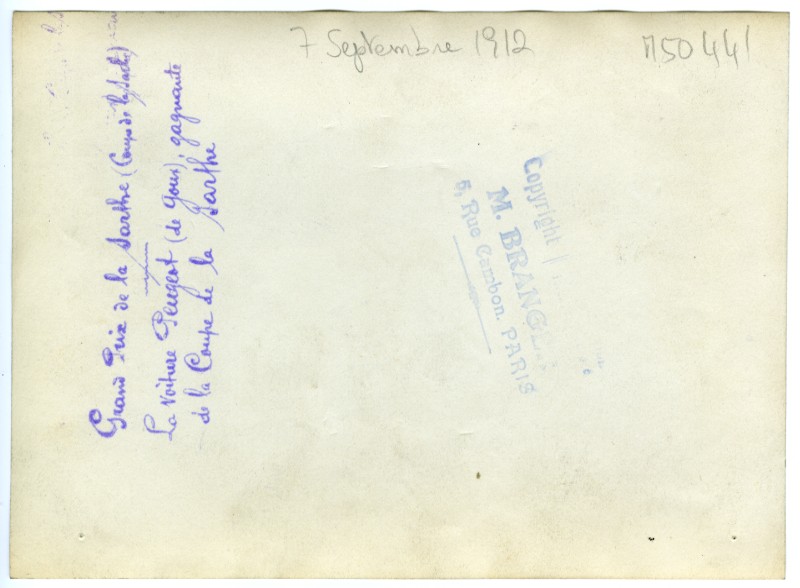 7 Septembre 1912
M50441
Grand Prix de la Sarthe (Coupe de la Sarthe)
La Voiture Peugeot (de Goux), gagnante
de la Coupe de la Sarthe
Copyright
M. BRANG
5, Rue Cambon. PARIS